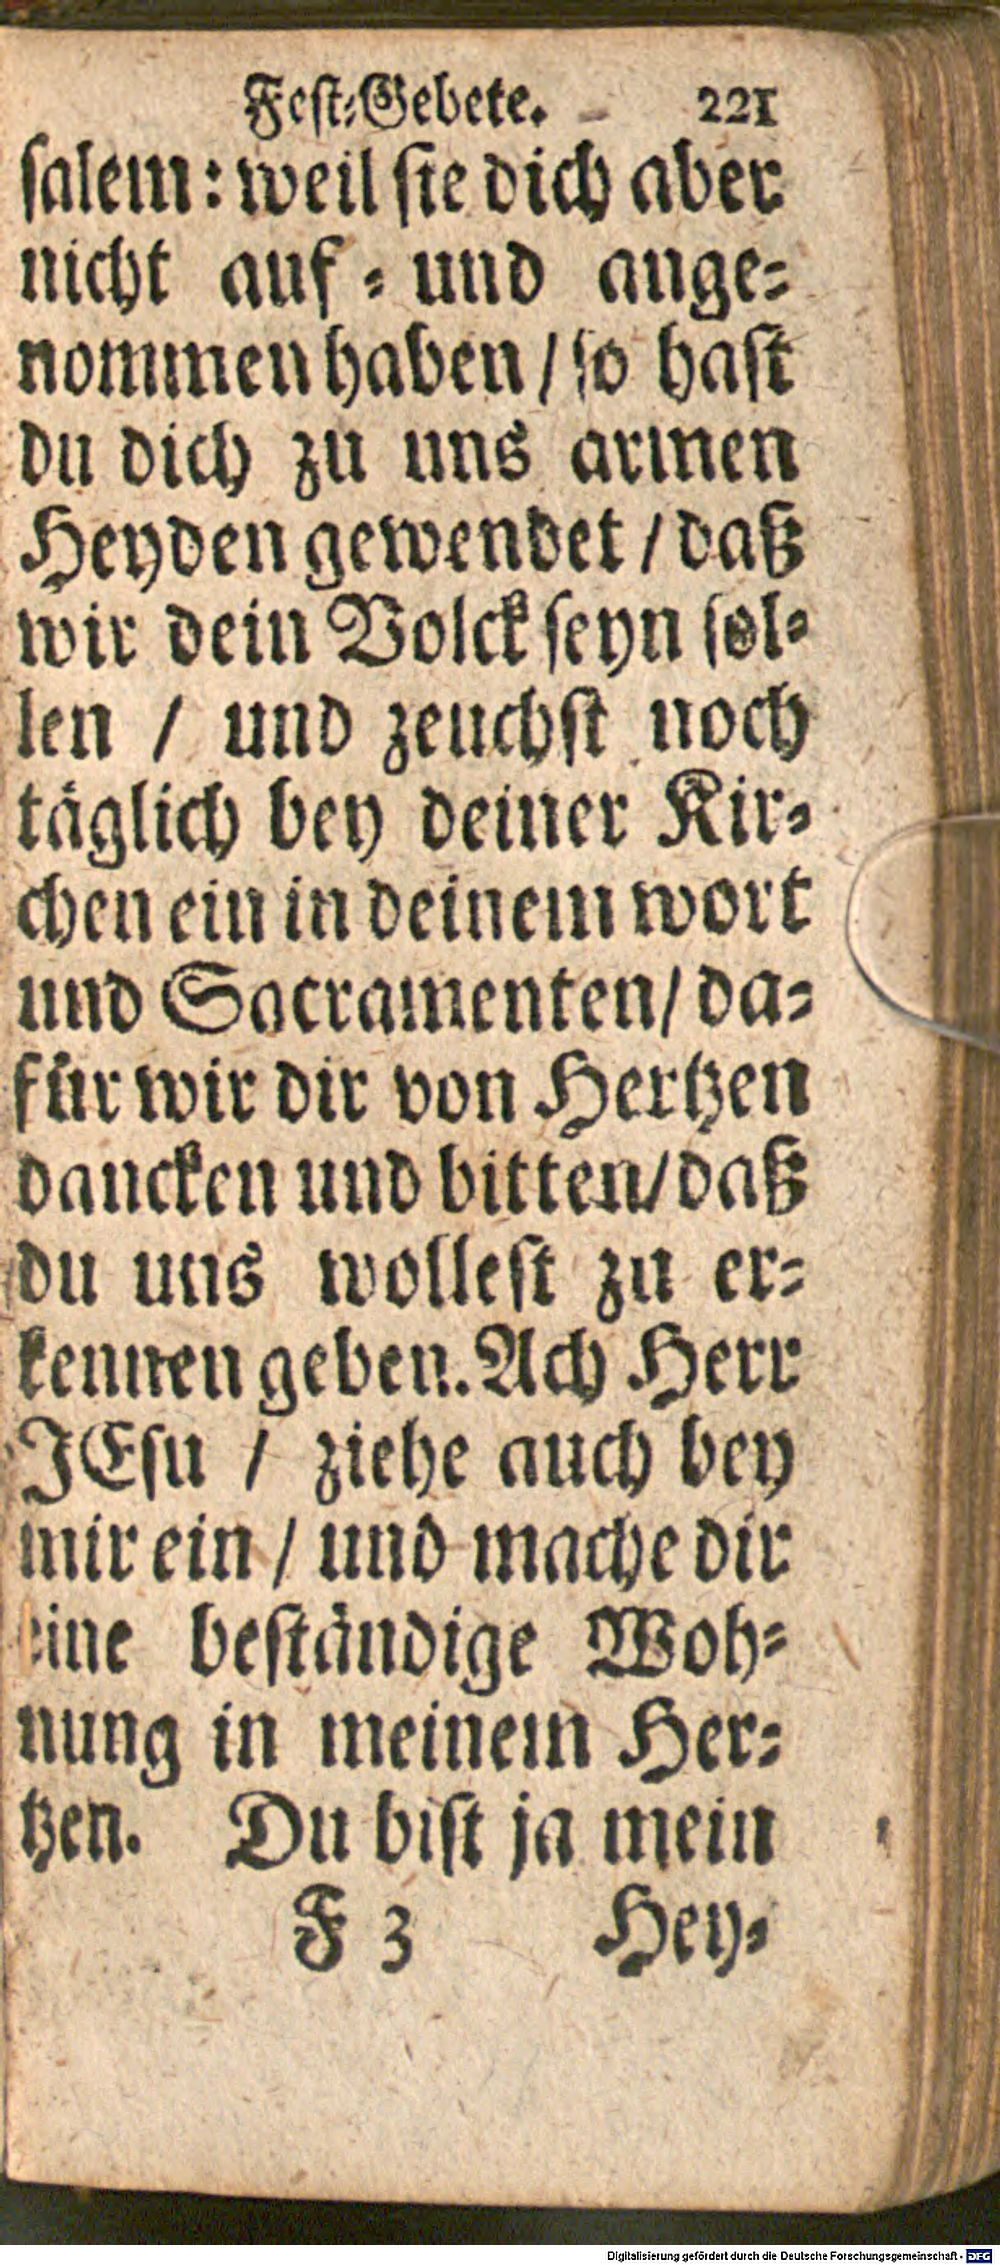 Fest-Gebete. 221
salem: weil sie dich aber
nicht auf- und ange-
nommen haben / so hast
du dich zu uns armen
Heyden gewendet / daß
wir dein Volck seyn sol-
len / und zeuchst noch
täglich bey deiner Kir-
chen ein in deinem wort
und Sacramenten / da-
für wir dir von Hertzen
dancken und bitten / daß
du uns wollest zu er-
kennen geben. Ach Herr
JEsu / ziehe auch bey
mir ein / und mache dir
eine beständige Woh-
nung in meinem Her-
tzen. Du bist ja mein
F 3 Hey-
Digitalisierung gefördert durch die Deutsche Forschungsgemeinschaft - DFG